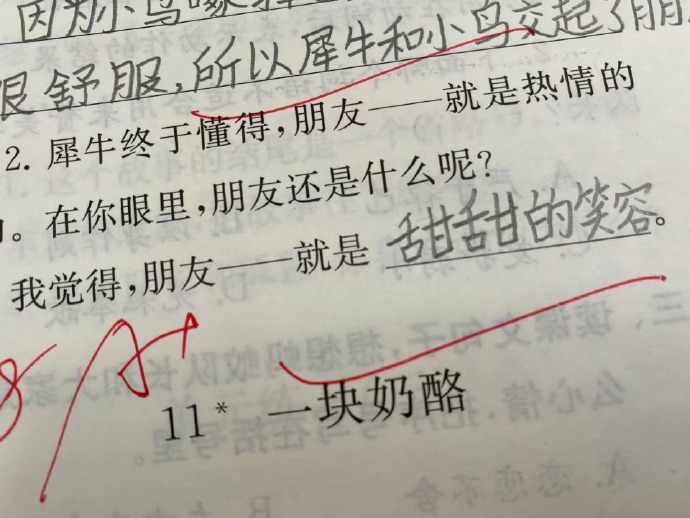 因为小鸟啄
很舒服,所以犀牛和小鸟交起了朋
2. 犀牛终于懂得,朋友——就是热情的
。在你眼里,朋友还是什么呢?
我觉得,朋友——就是 甜甜的笑容。
A+
11* 一块奶酪